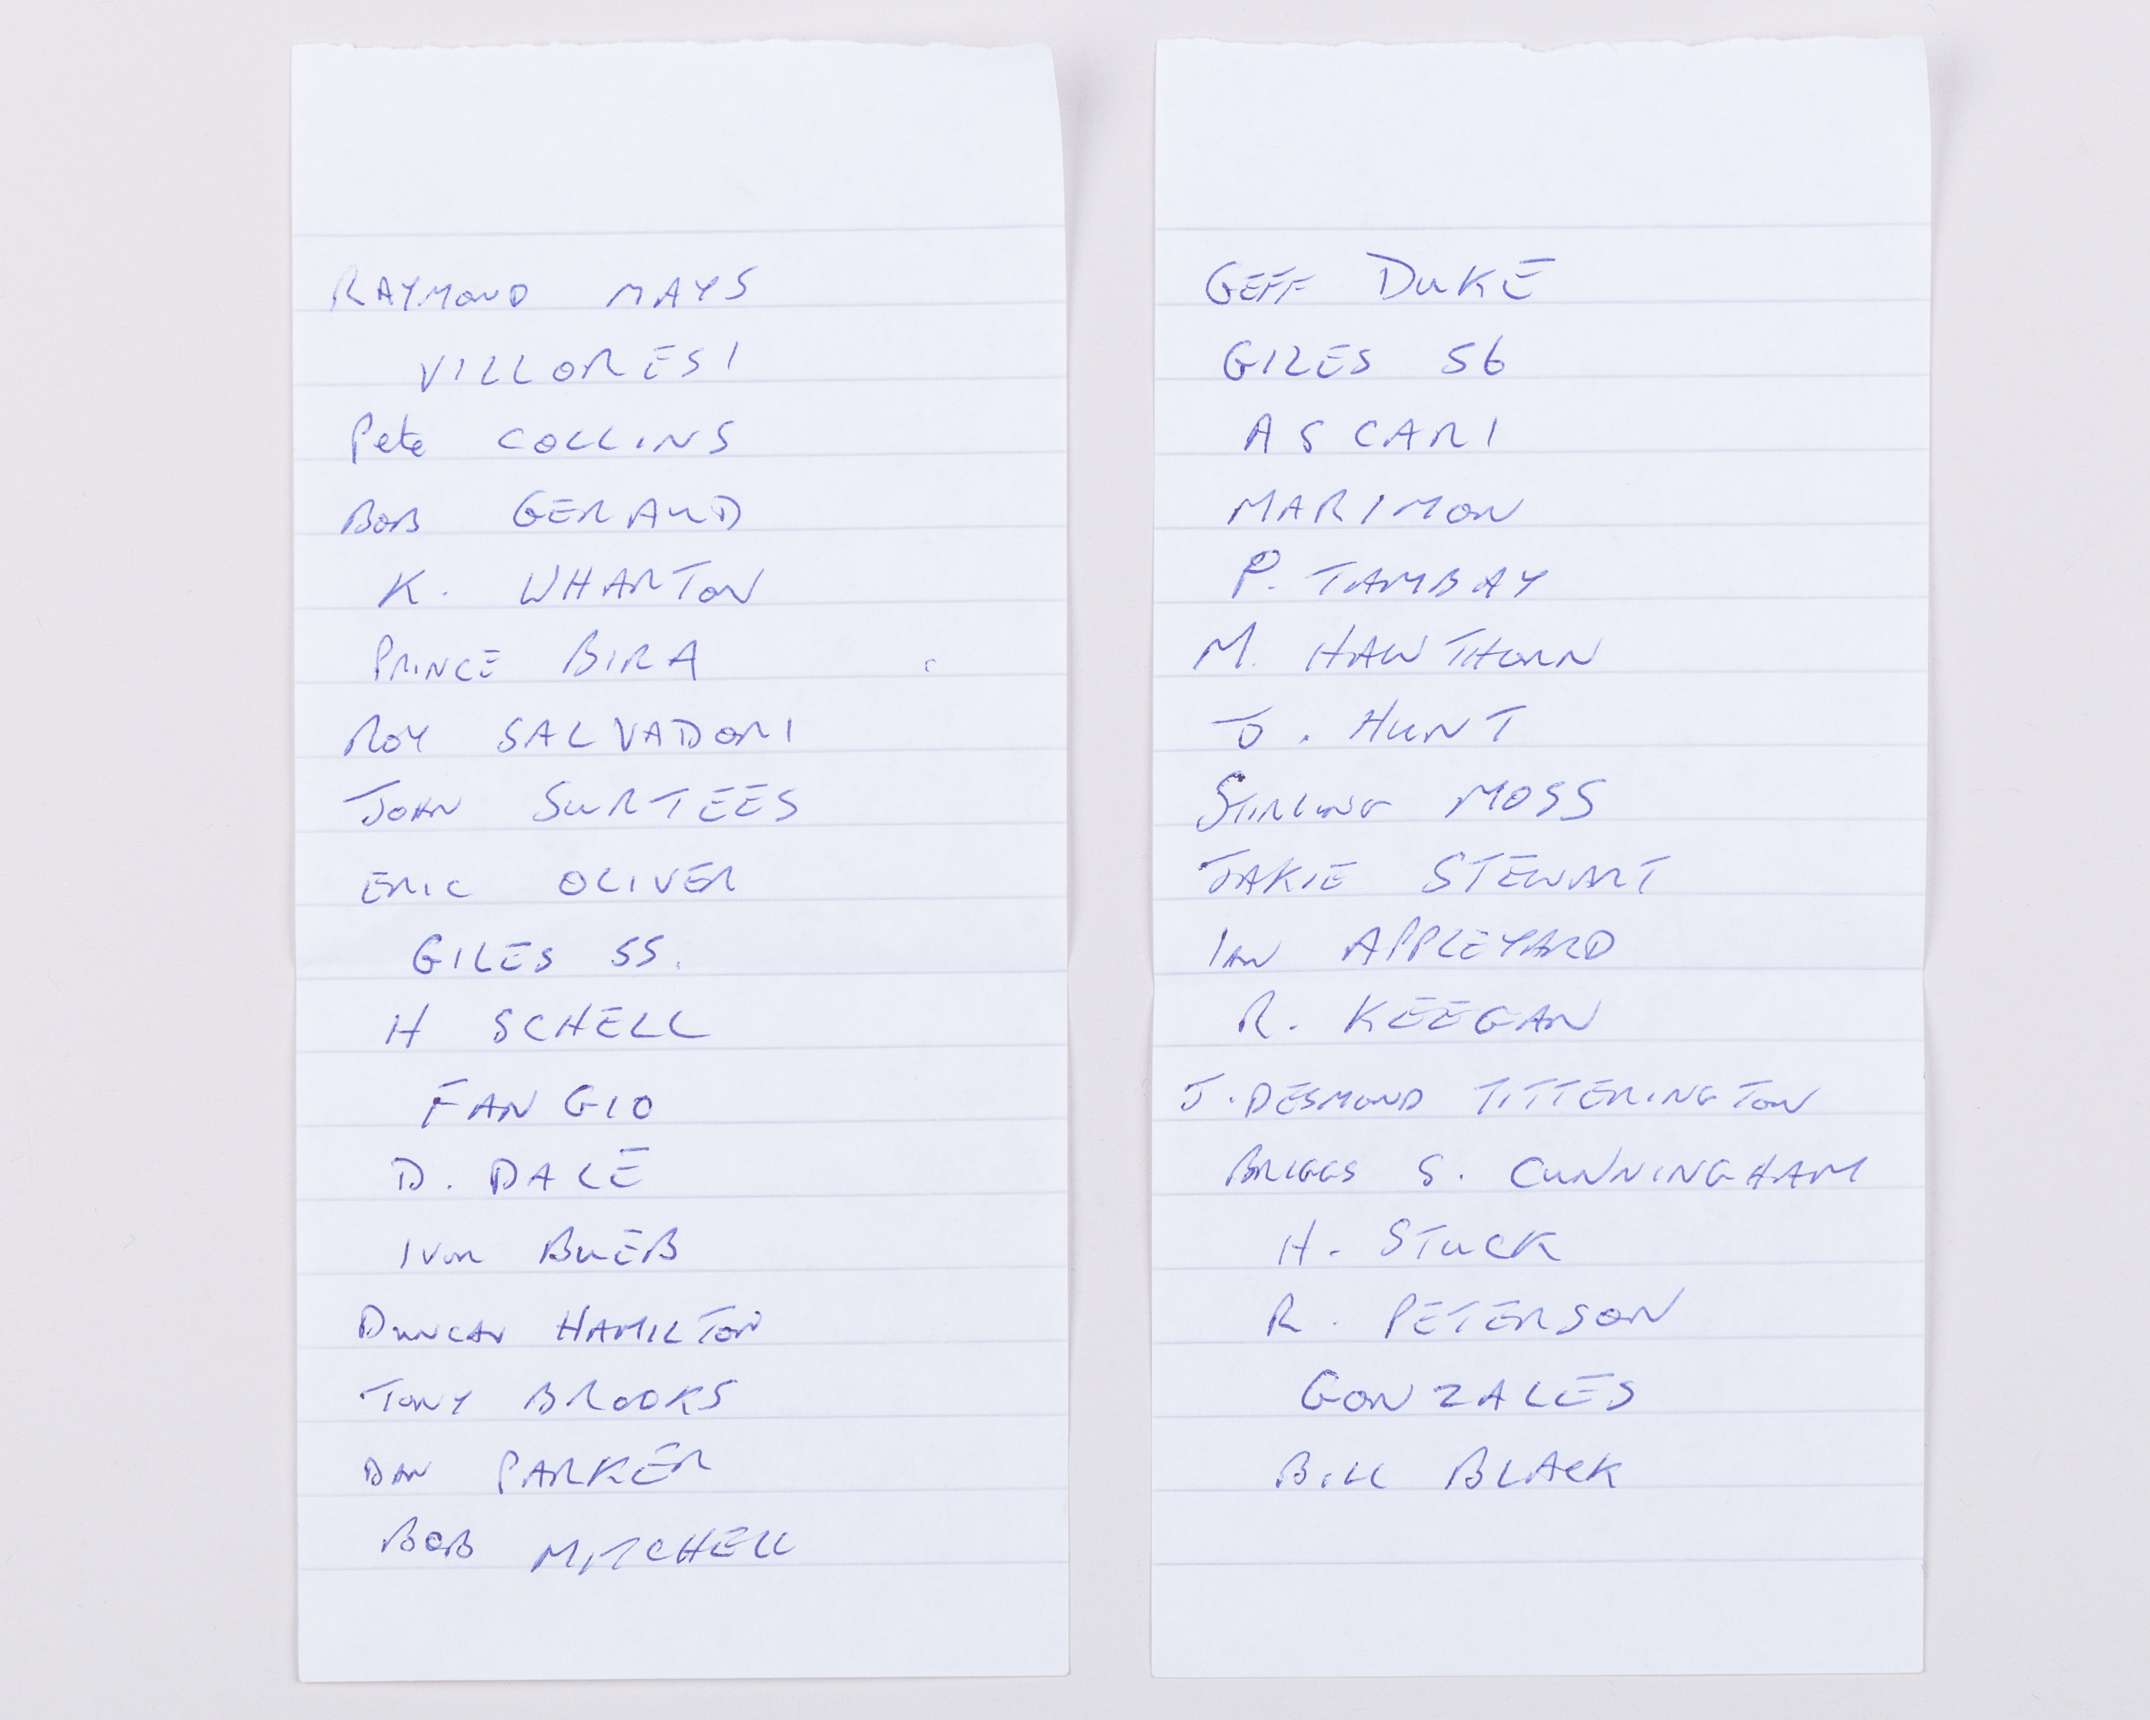 RAYMOND MAYS
VILLORESI
Pete COLLINS
BOB GERARD
K. WHARTON
PRINCE BIRA
ROY SALVADORI
JOHN SURTEES
ERIC OLIVER
GILES 55.
H SCHELL
FANGIO
D. DALE
IVOR BUEB
DUNCAN HAMILTON
TONY BROOKS
DAN PARKER
BOB MITCHELL
GEFF DUKE
GILES 56
ASCARI
MARIMON
P. TAMBAY
M. HAWTHORN
J. HUNT
STIRLING MOSS
JAKIE STEWART
IAN APPLEYARD
R. KEEGAN
J. DESMOND TITTERINGTON
BRIGGS S. CUNNINGHAM
H. STUCK
R. PETERSON
GONZALES
BILL BLACK